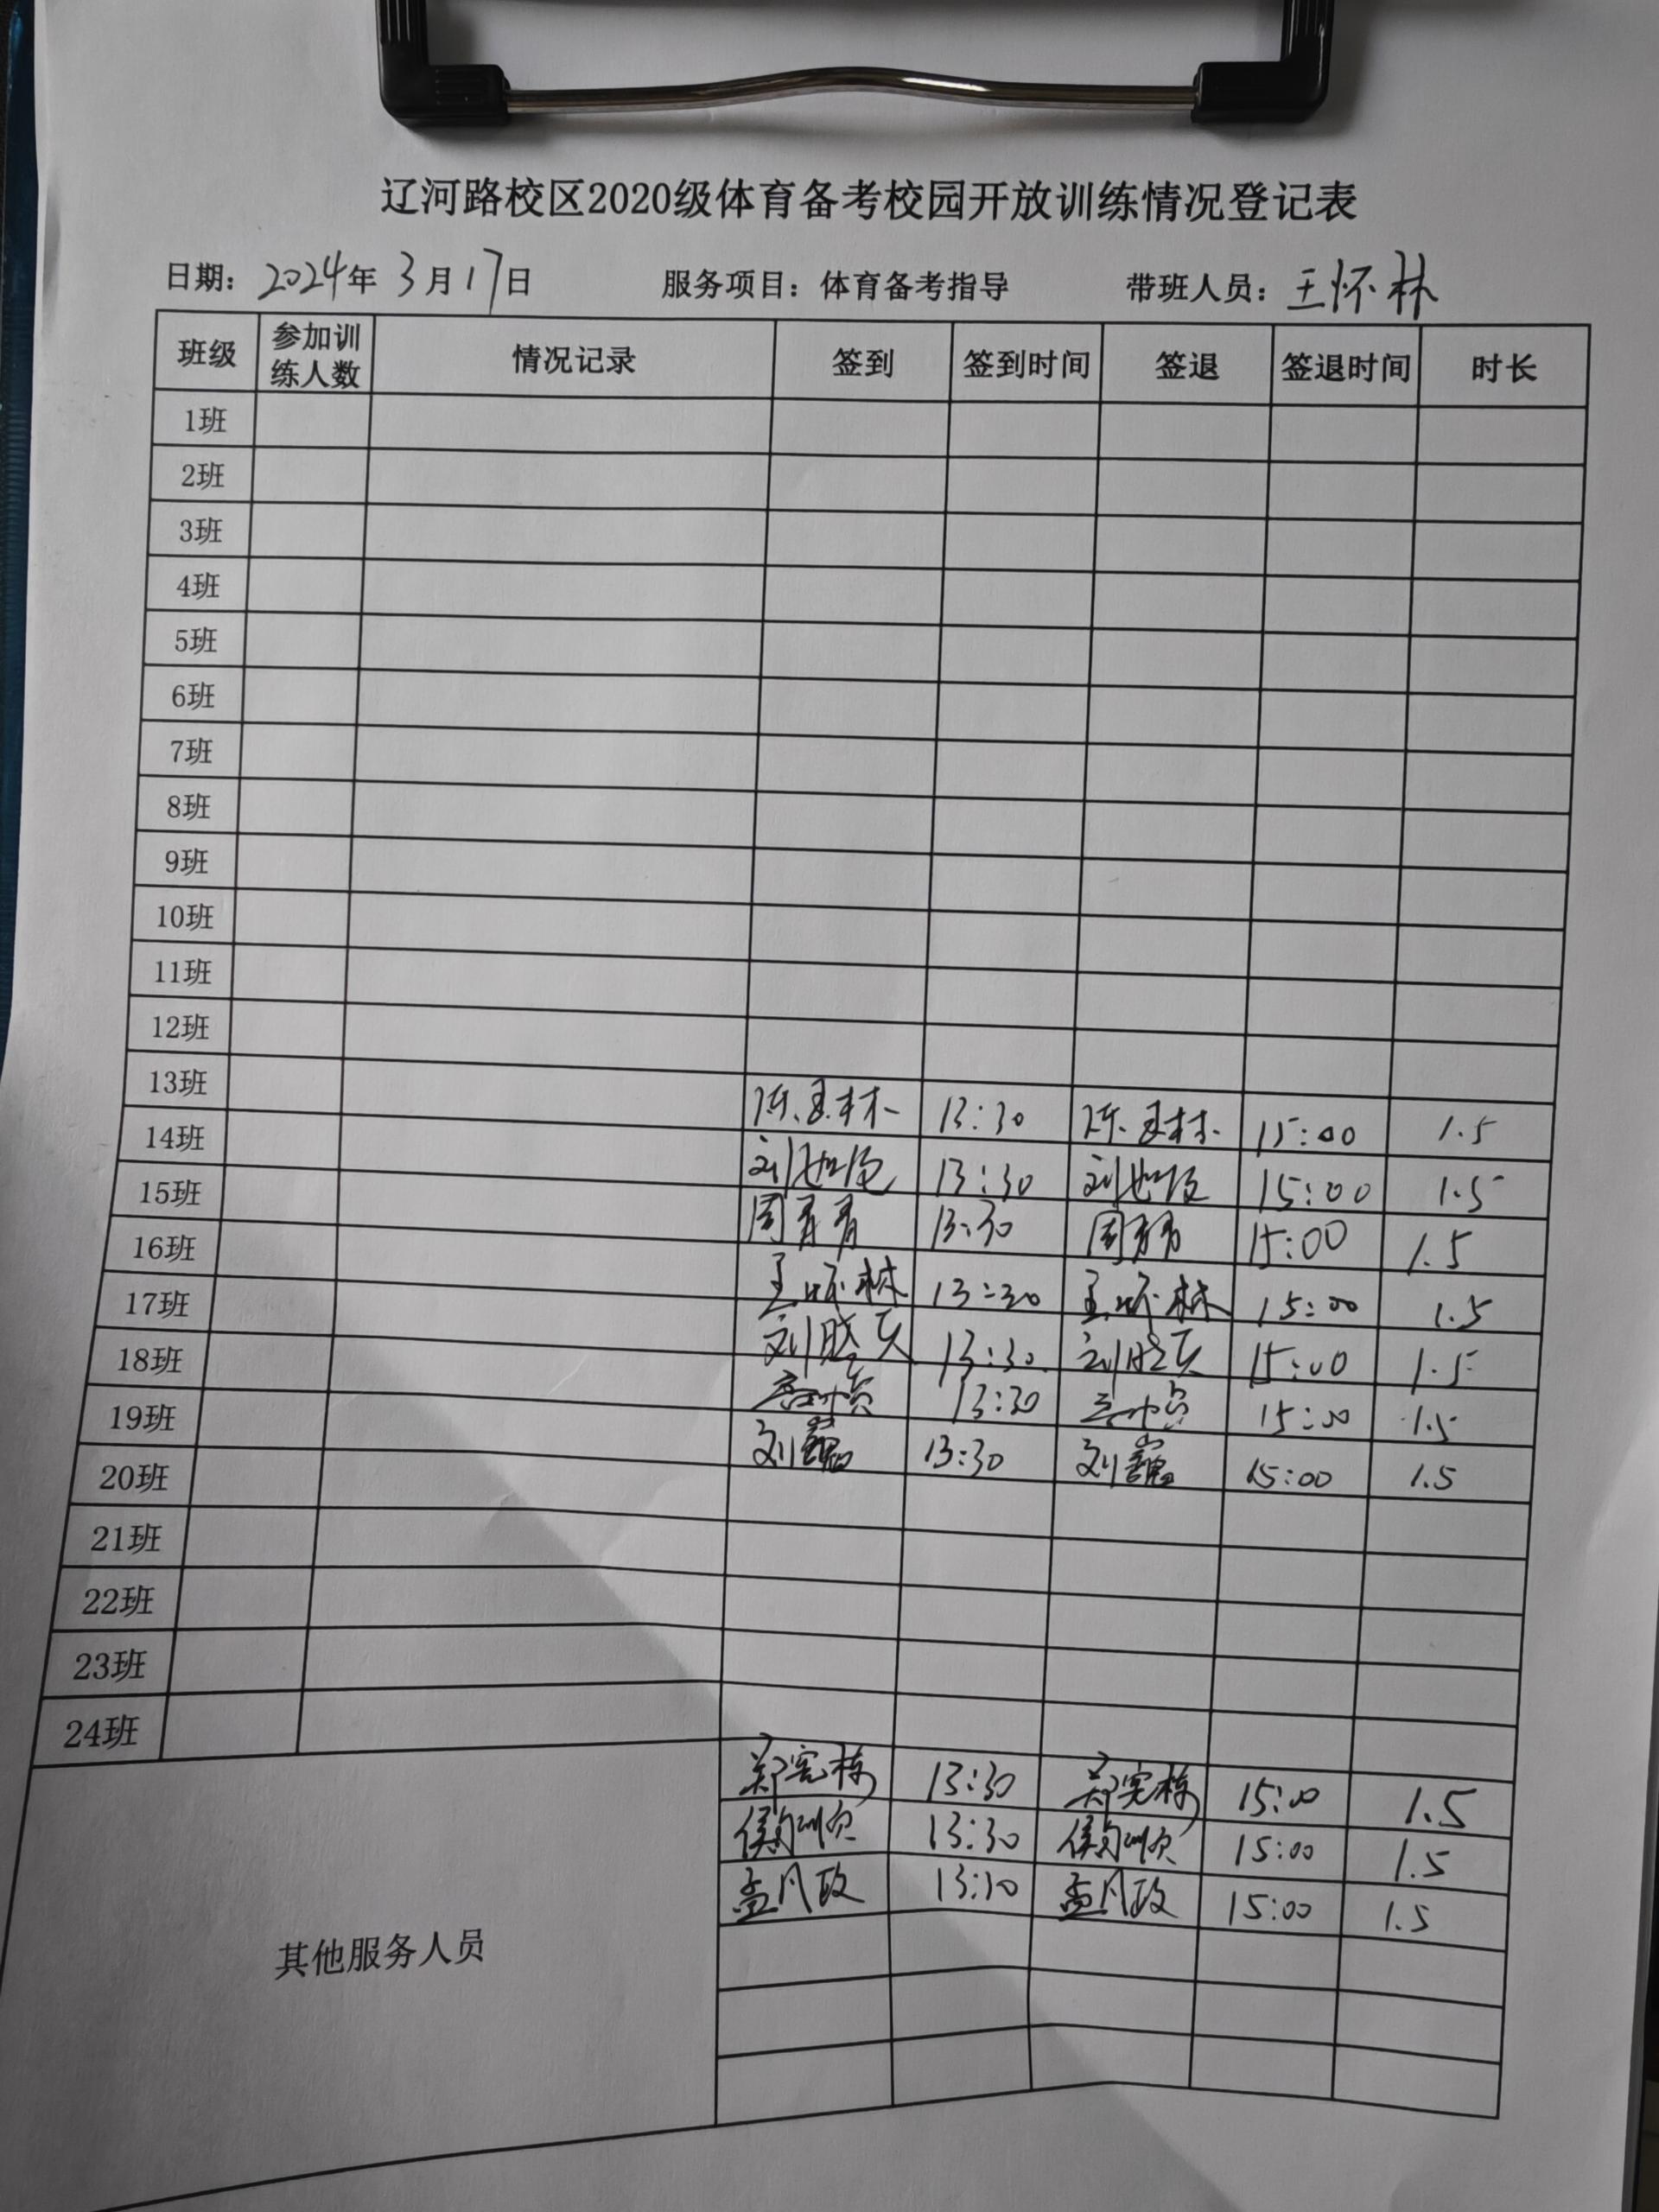 辽河路校区2020级体育备考校园开放训练情况登记表
日期：2024年3月17日 服务项目：体育备考指导 带班人员：王怀林
班级 参加训练人数 情况记录 签到 签到时间 签退 签退时间 时长
1班
2班
3班
4班
5班
6班
7班
8班
9班
10班
11班
12班
13班 13:30 15:00 1.5
14班 13:30 15:00 1.5
15班 周青青 13:30 周青青 15:00 1.5
16班 王怀林 13:30 王怀林 15:00 1.5
17班 13:30 15:00 1.5
18班 13:30 15:00 1.5
19班 刘巍 13:30 刘巍 15:00 1.5
20班
21班
22班
23班
24班
其他服务人员
郑宪栋 13:30 郑宪栋 15:00 1.5
13:30 15:00 1.5
孟凡政 13:30 孟凡政 15:00 1.5